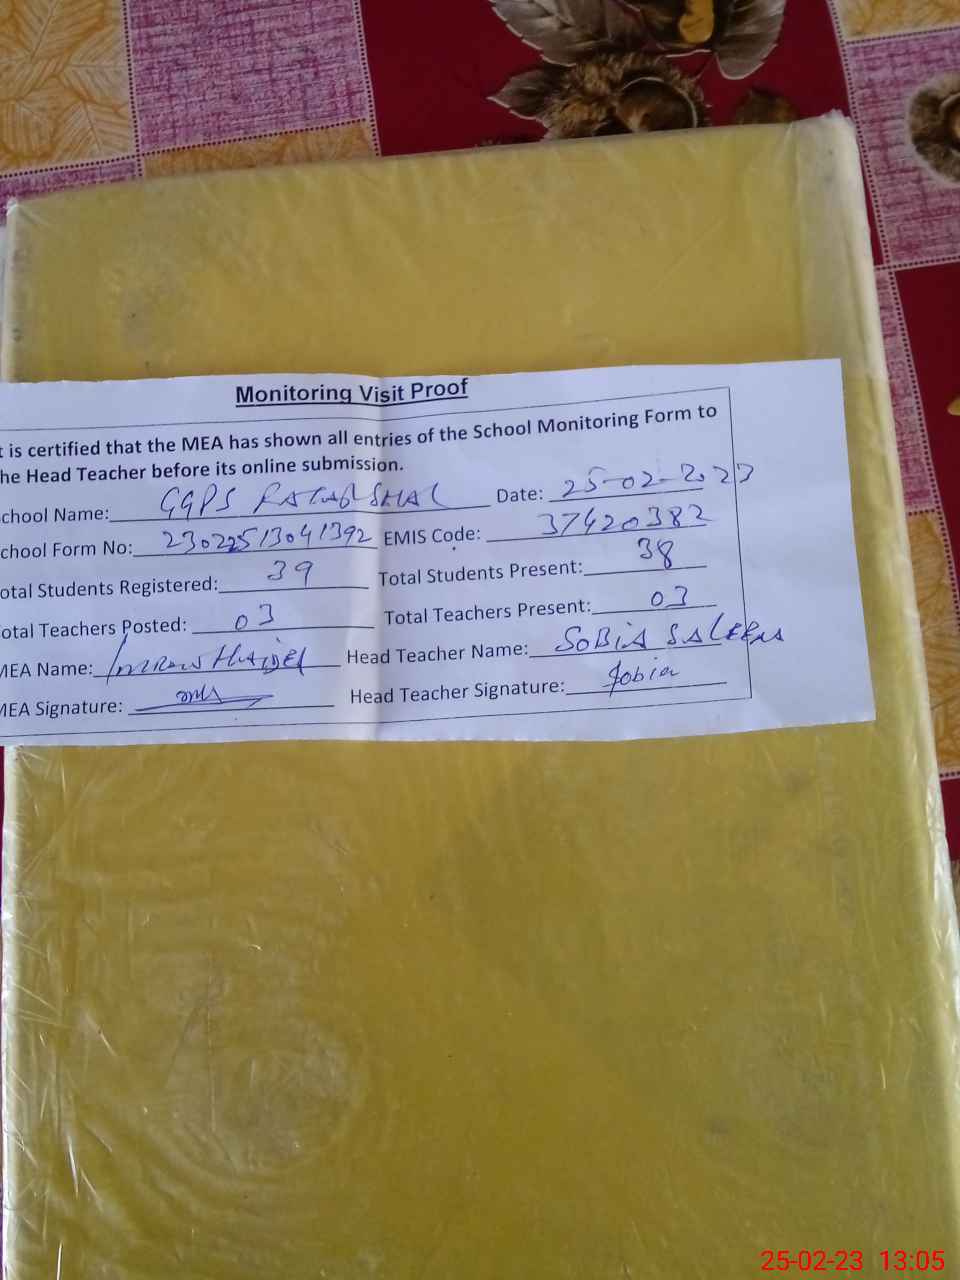 Monitoring Visit Proof
t is certified that the MEA has shown all entries of the School Monitoring Form to
he Head Teacher before its online submission.
chool Name: GGPS Date: 25-02-2023
chool Form No: 23022513041392 EMIS Code: 37420382
otal Students Registered: 39 Total Students Present: 38
otal Teachers Posted: 03 Total Teachers Present: 03
MEA Name: Imran Haider Head Teacher Name: SOBIA SALEEMA
MEA Signature: Head Teacher Signature: Sobia
25-02-23 13:05